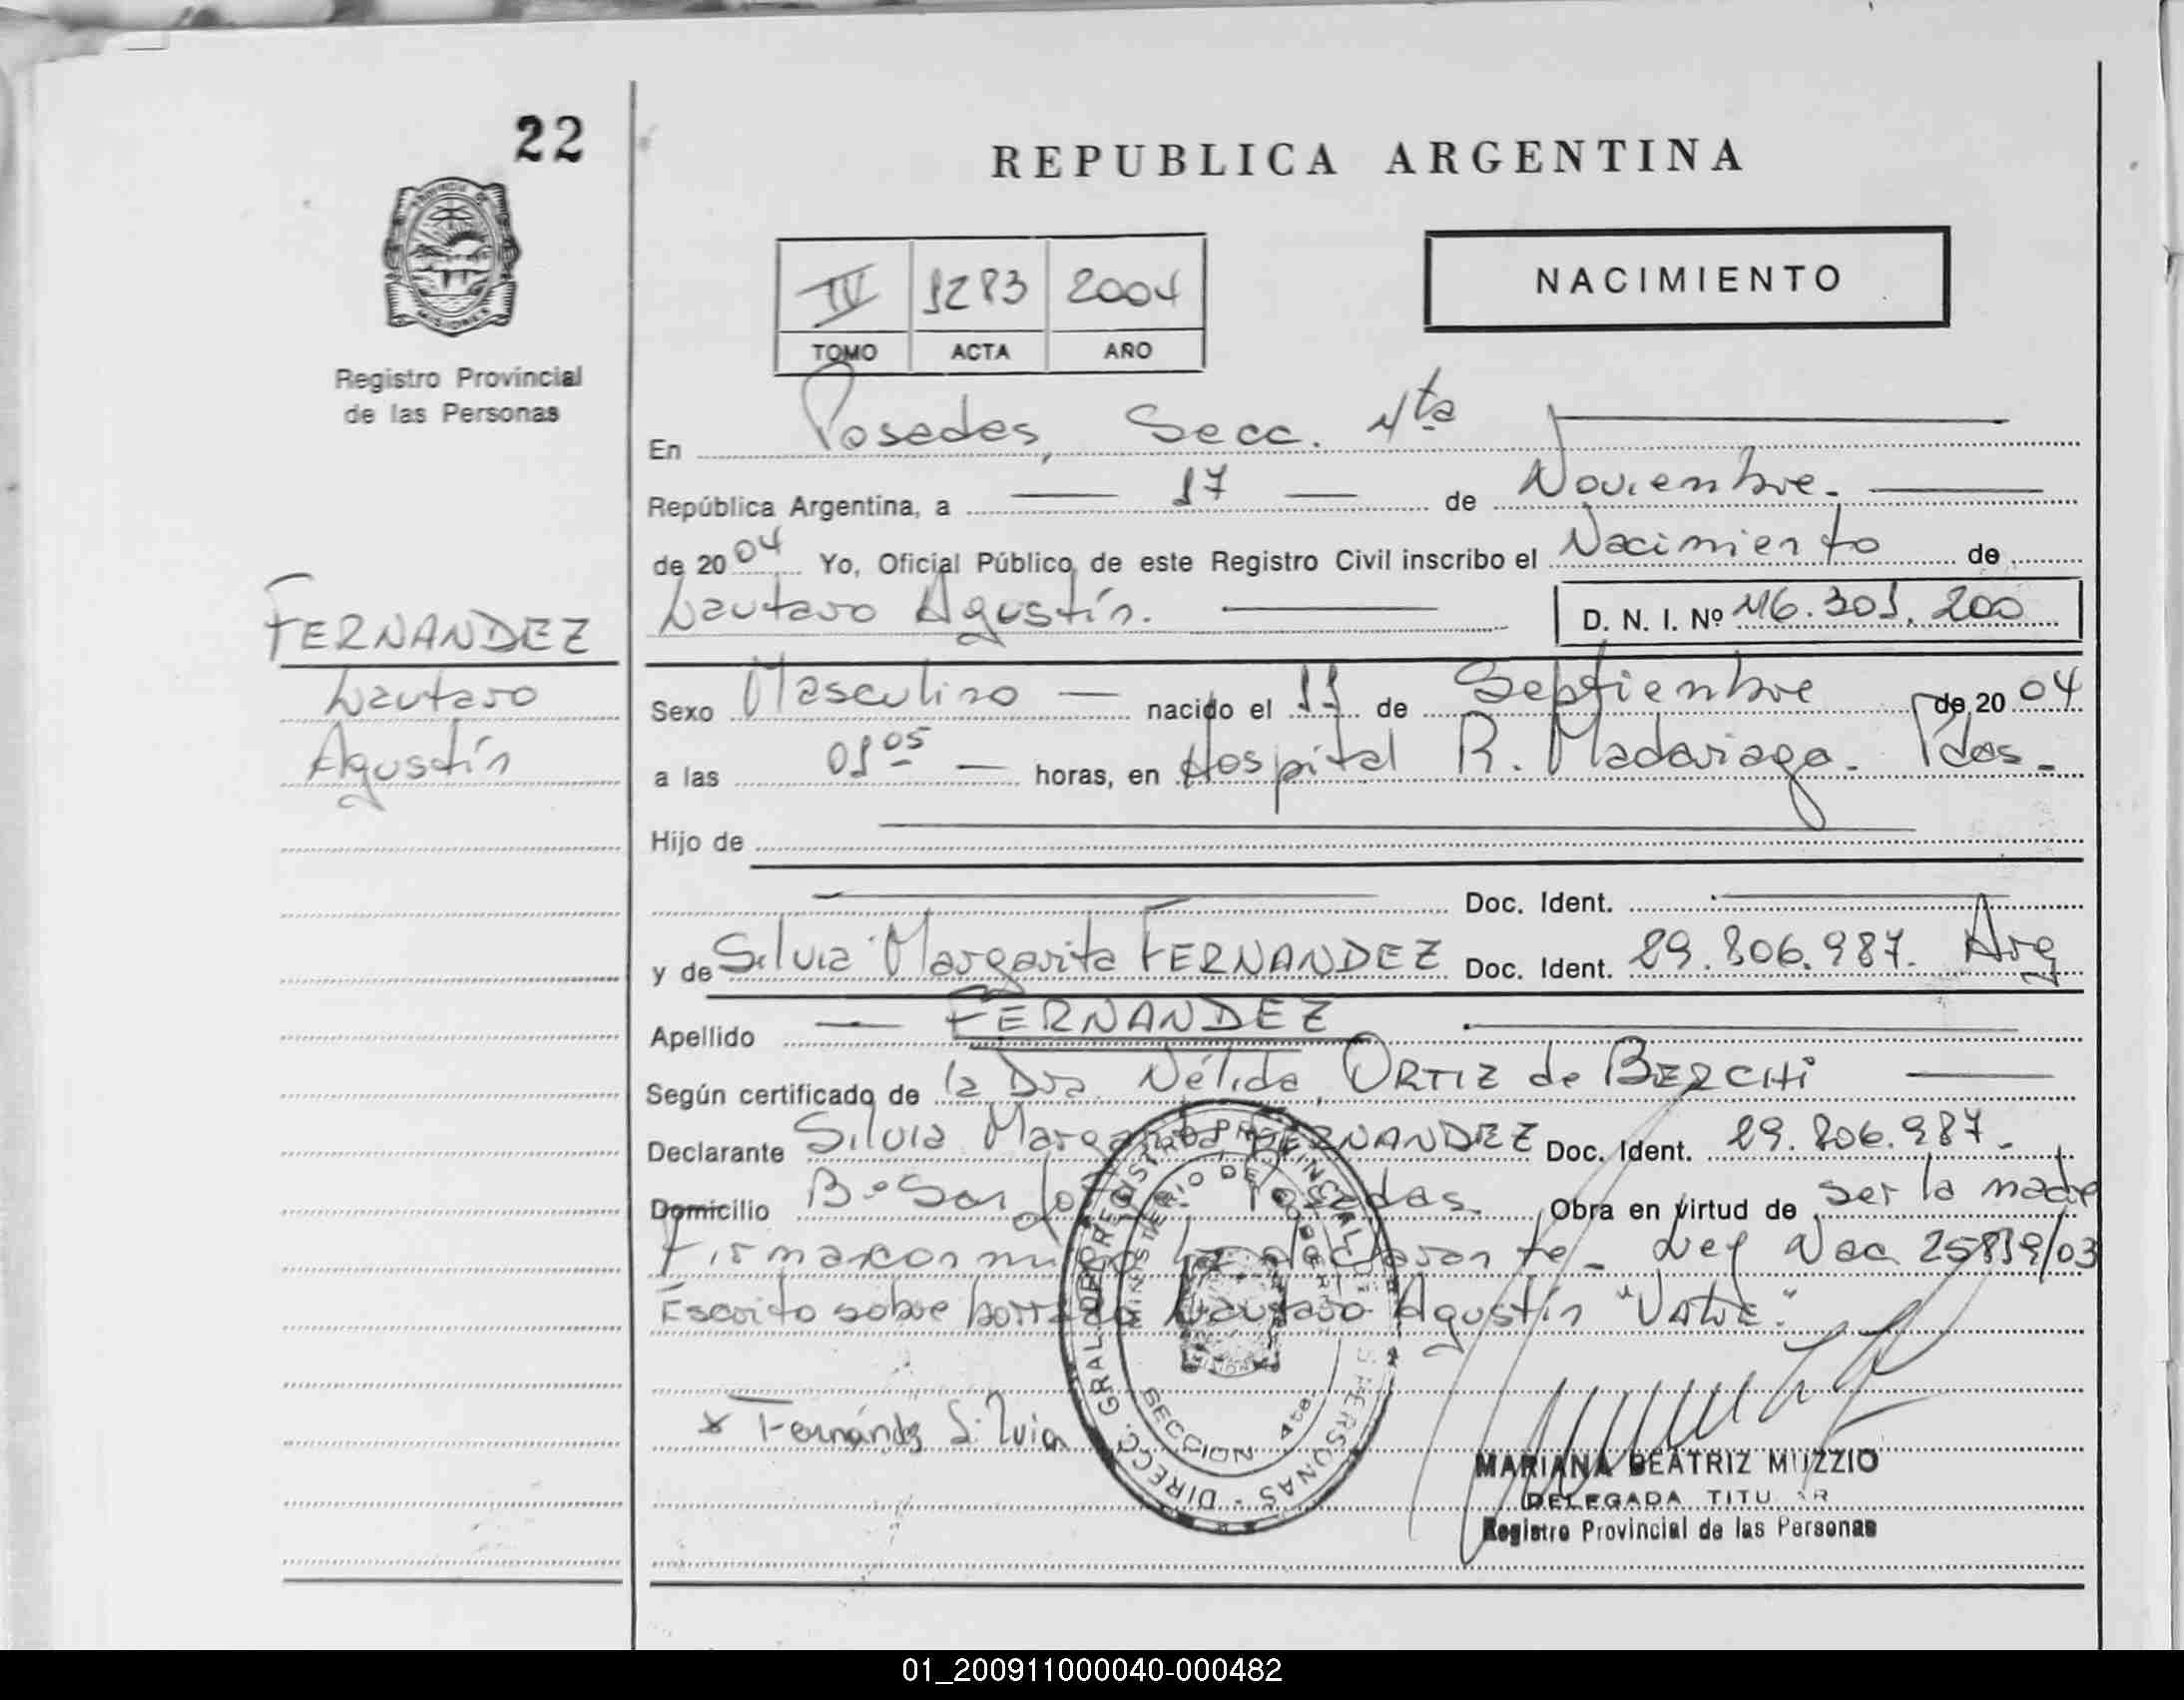 22
REPUBLICA ARGENTINA
NACIMIENTO
IV 1283 2004
TOMO ACTA AÑO
Registro Provincial
de las Personas
En Posadas, Secc. 4ta
República Argentina, a 17 de Noviembre.
de 2004 Yo, Oficial Público de este Registro Civil inscribo el Nacimiento de
Lautaro Agustín. D. N. I. Nº 46.301.200
FERNANDEZ
Lautaro
Agustín
Sexo Masculino nacido el 11 de Septiembre de 2004
a las 01 05 horas, en Hospital R. Madariaga. Pdas.
Hijo de
Doc. Ident.
y de Silvia Margarita FERNANDEZ Doc. Ident. 29.806.987. Arg
Apellido FERNANDEZ
Según certificado de la Dra. Nélida ORTIZ de BERCHI
Declarante Silvia Margarita FERNANDEZ Doc. Ident. 29.806.987.
Domicilio Bº San Posadas. Obra en virtud de ser la madre
Firma conmigo la declarante. Ley Nac 25819/03
Escrito sobre borrado Lautaro Agustín "Vale".
x Fernández Silvia
DIRECC. GRAL. DEL REGISTRO PROVINCIAL DE LAS PERSONAS
MINISTERIO DE GOBIERNO
SECCION 4ta.
MARIANA BEATRIZ MUZZIO
DELEGADA TITULAR
Registro Provincial de las Personas
01_200911000040-000482